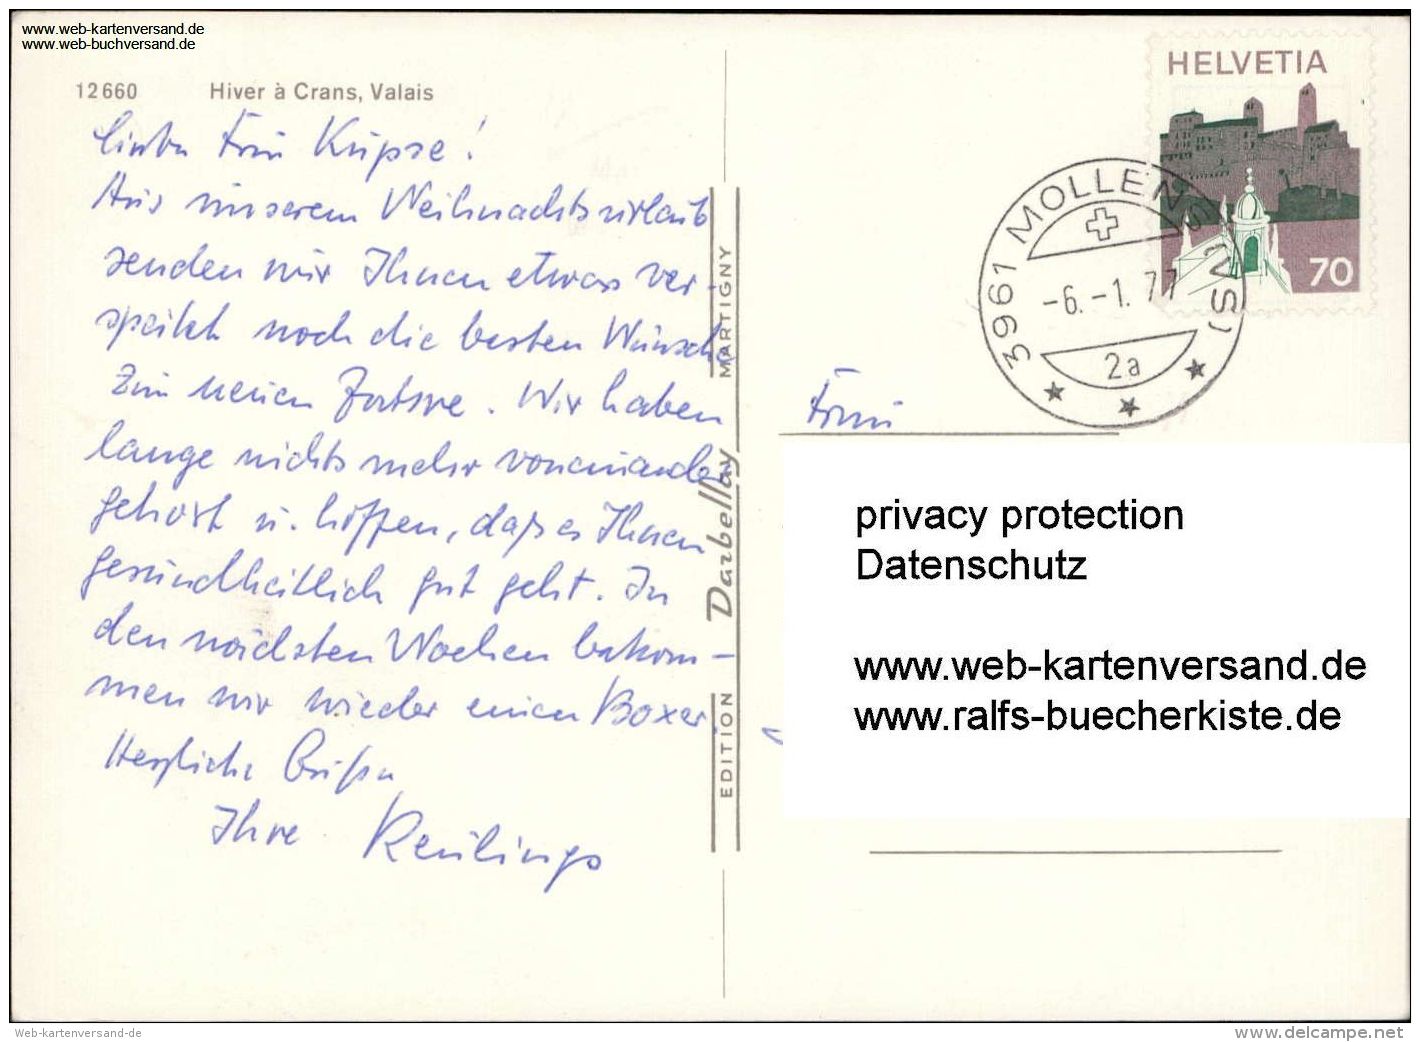 www.web-kartenversand.de
www.web-buchversand.de
12660 Hiver à Crans, Valais
Liebe Frau Kupse!
Aus unserem Weihnachtsurlaub
senden wir Ihnen etwas ver-
spätet noch die besten Wünsche
zum neuen Jahre. Wir haben
lange nichts mehr voneinander
gehört u. hoffen, daß es Ihnen
gesundheitlich gut geht. In
den nächsten Wochen bekom-
men wir wieder einen Boxer.
Herzliche Grüße
Ihre Reulings
EDITION Darbellay MARTIGNY
HELVETIA
70
3961 MOLLENS (VS)
-6.-1.77
2a
Frau
privacy protection
Datenschutz
www.web-kartenversand.de
www.ralfs-buecherkiste.de
Web-kartenversand-de
www.delcampe.net